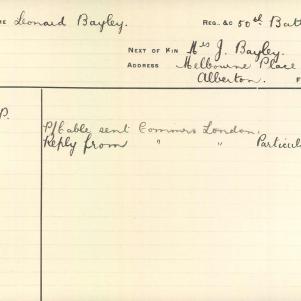 ME Leonard Bayley. REG. &C 50th Batt
NEXT OF KIN Mrs J. Bayley.
ADDRESS Melbourne Place
Alberton.
P.
P/Cable sent Commrs London.
Reply from " " Particul